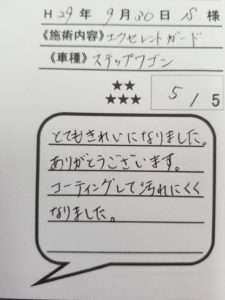 H29年9月30日 S様
《施術内容》エクセレントガード
《車種》ステップワゴン
★★
★★★ 5/5
とてもきれいになりました。
ありがとうございます。
コーティングして汚れにくく
なりました。